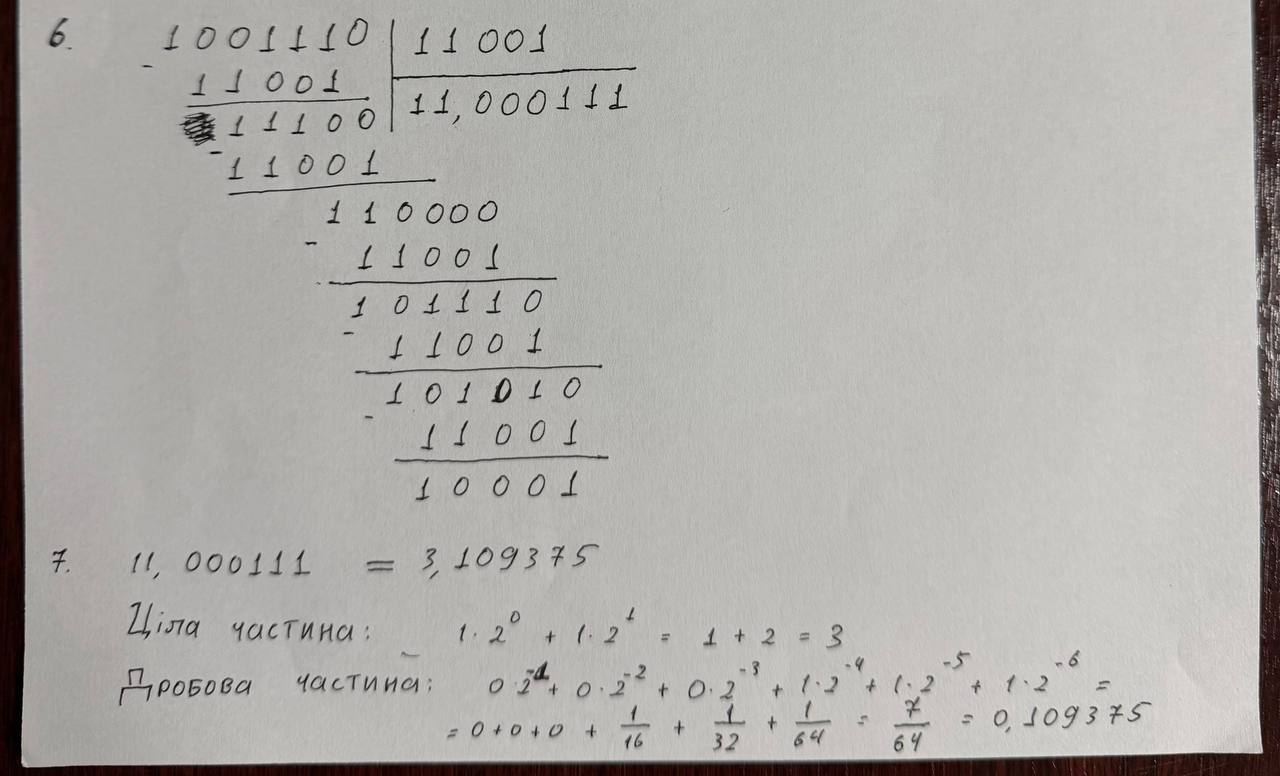 6. 1001110 | 11001
- 11001 | 11,000111
11100
- 11001
110000
- 11001
101110
- 11001
101010
- 11001
10001
7. 11, 000111 = 3,109375
Ціла частина: 1·2⁰ + 1·2¹ = 1 + 2 = 3
Дробова частина: 0·2⁻¹ + 0·2⁻² + 0·2⁻³ + 1·2⁻⁴ + 1·2⁻⁵ + 1·2⁻⁶ =
= 0+0+0 + 1/16 + 1/32 + 1/64 = 7/64 = 0,109375